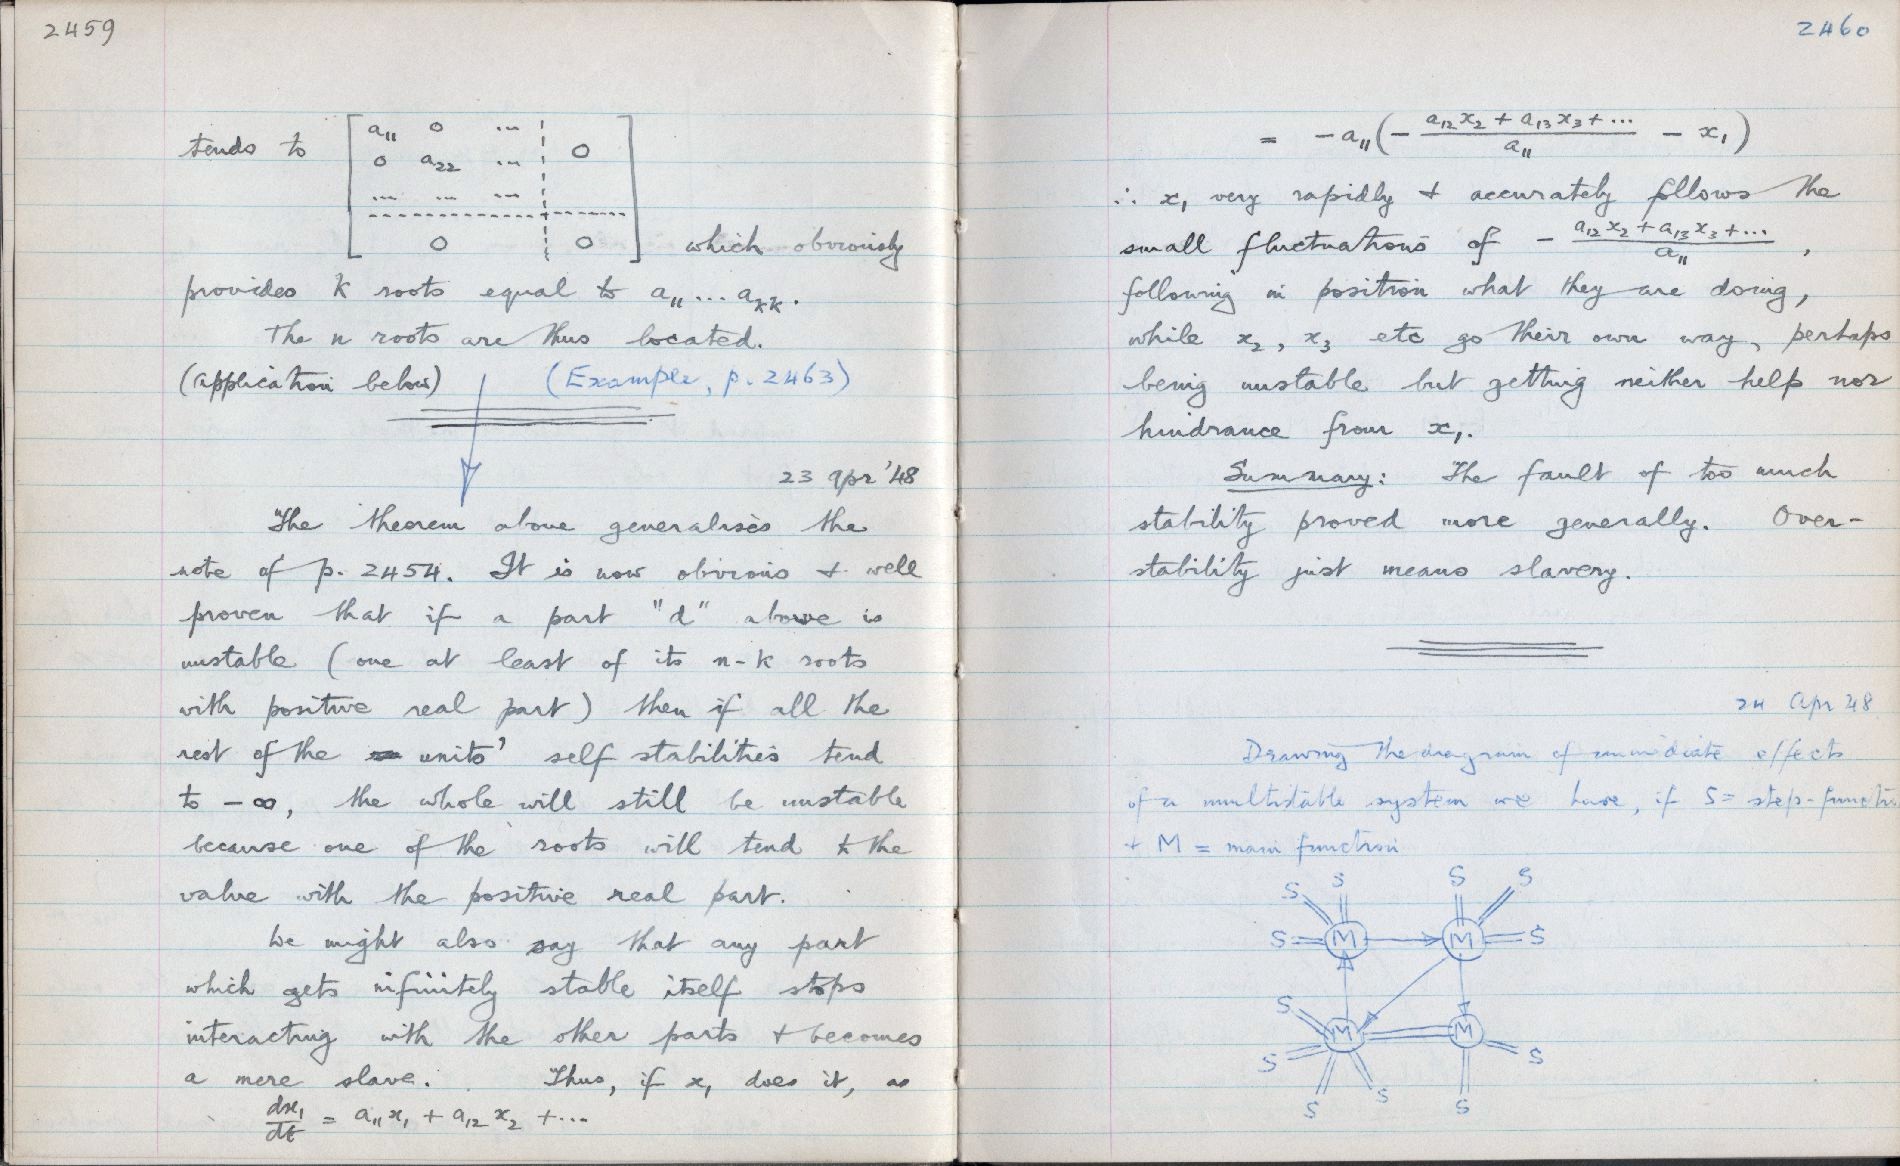 2459
tends to [ a₁₁ 0 ... ¦ 0
0 a₂₂ ...
... ... ...
0 ¦ 0 ] which obviously
provides k roots equal to a₁₁ ... aₖₖ.
The n roots are thus located.
(Application below) (Example, p. 2463)
23 Apr '48
The theorem above generalises the
note of p. 2454. It is now obvious & well
proven that if a part "d" above is
unstable (one at least of its n-k roots
with positive real part) then if all the
rest of the units' self stabilities tend
to -∞, the whole will still be unstable
because one of the roots will tend to the
value with the positive real part.
We might also say that any part
which gets infinitely stable itself stops
interacting with the other parts & becomes
a mere slave. Thus, if x₁ does it, as
dx₁/dt = a₁₁x₁ + a₁₂x₂ + ...
2460
= -a₁₁(- (a₁₂x₂ + a₁₃x₃ + ...)/a₁₁ - x₁)
∴ x₁ very rapidly & accurately follows the
small fluctuations of - (a₁₂x₂ + a₁₃x₃ + ...)/a₁₁ ,
following in position what they are doing,
while x₂, x₃ etc go their own way, perhaps
being unstable but getting neither help nor
hindrance from x₁.
Summary: The fault of too much
stability proved more generally. Over-
stability just means slavery.
24 Apr 48
Drawing the diagram of immediate effects
of a multistable system we have, if S = step-functi
& M = main function
S S S S
S M M S
S M M
S S
S S S